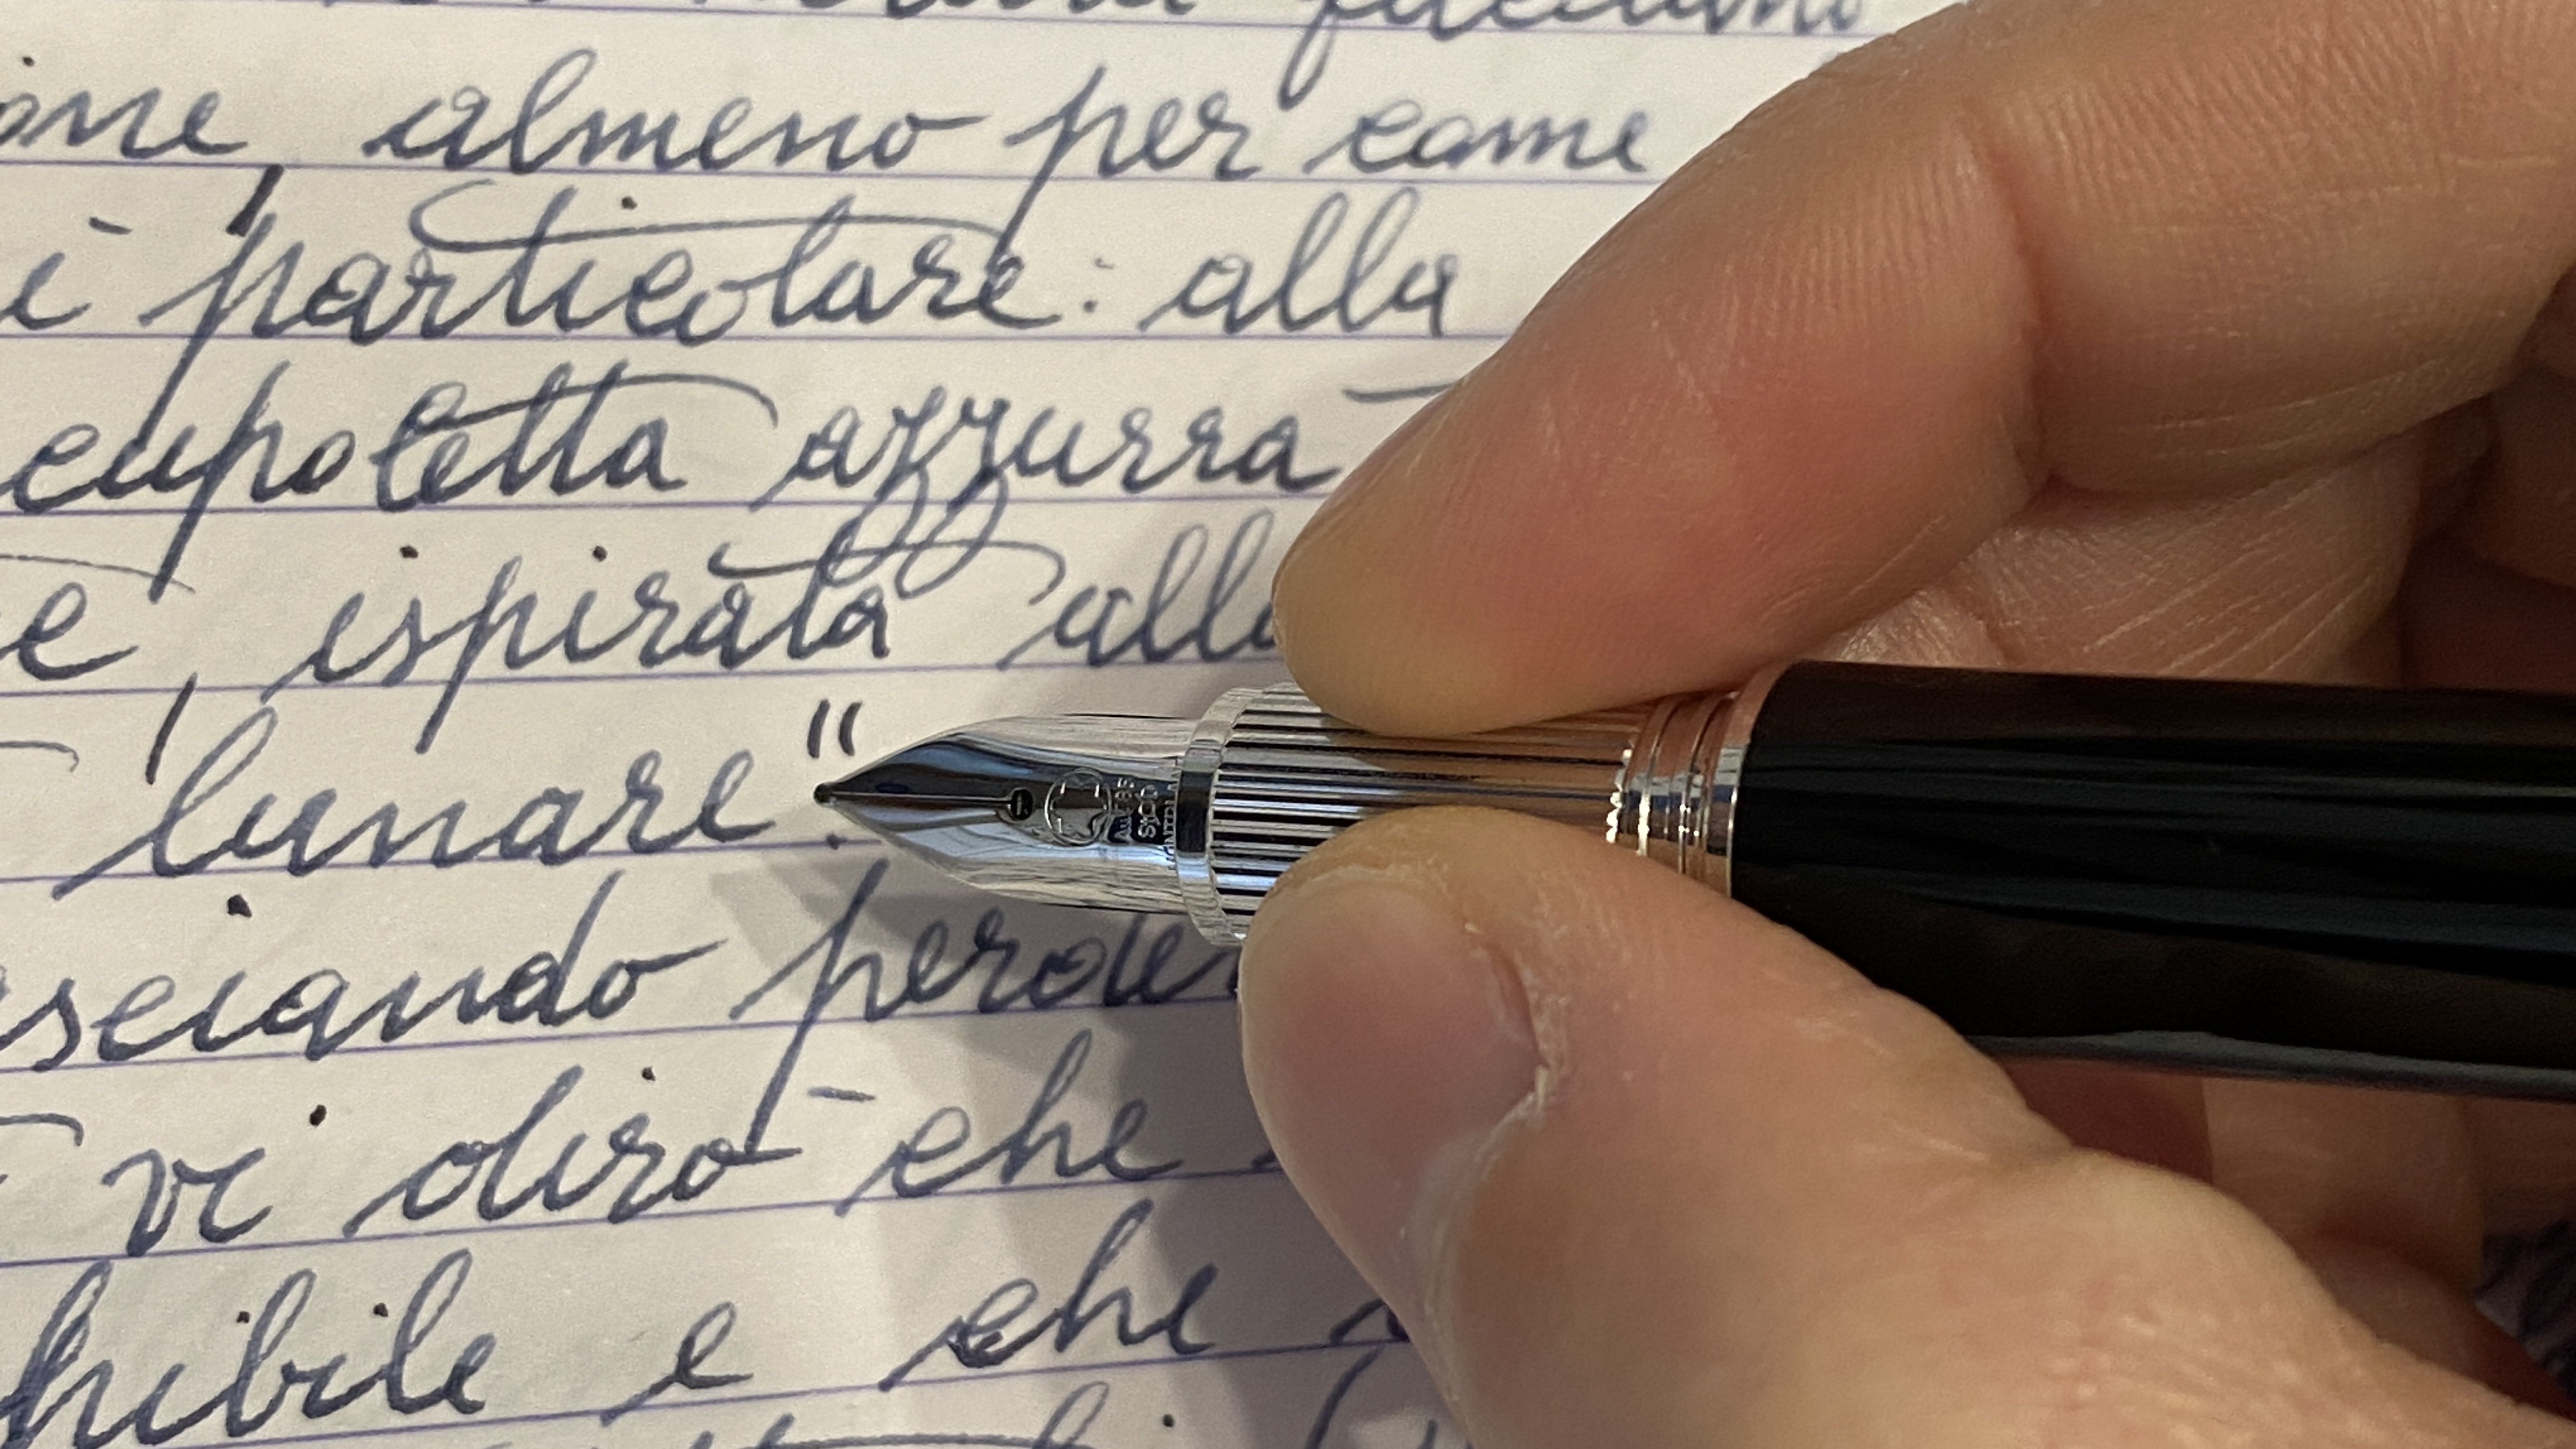 one, almeno per come
i particolare: alla
cupoletta azzurra
e, ispirata alla
"lunare".
sciando perder
vi dirò che
hibile e che
Au585